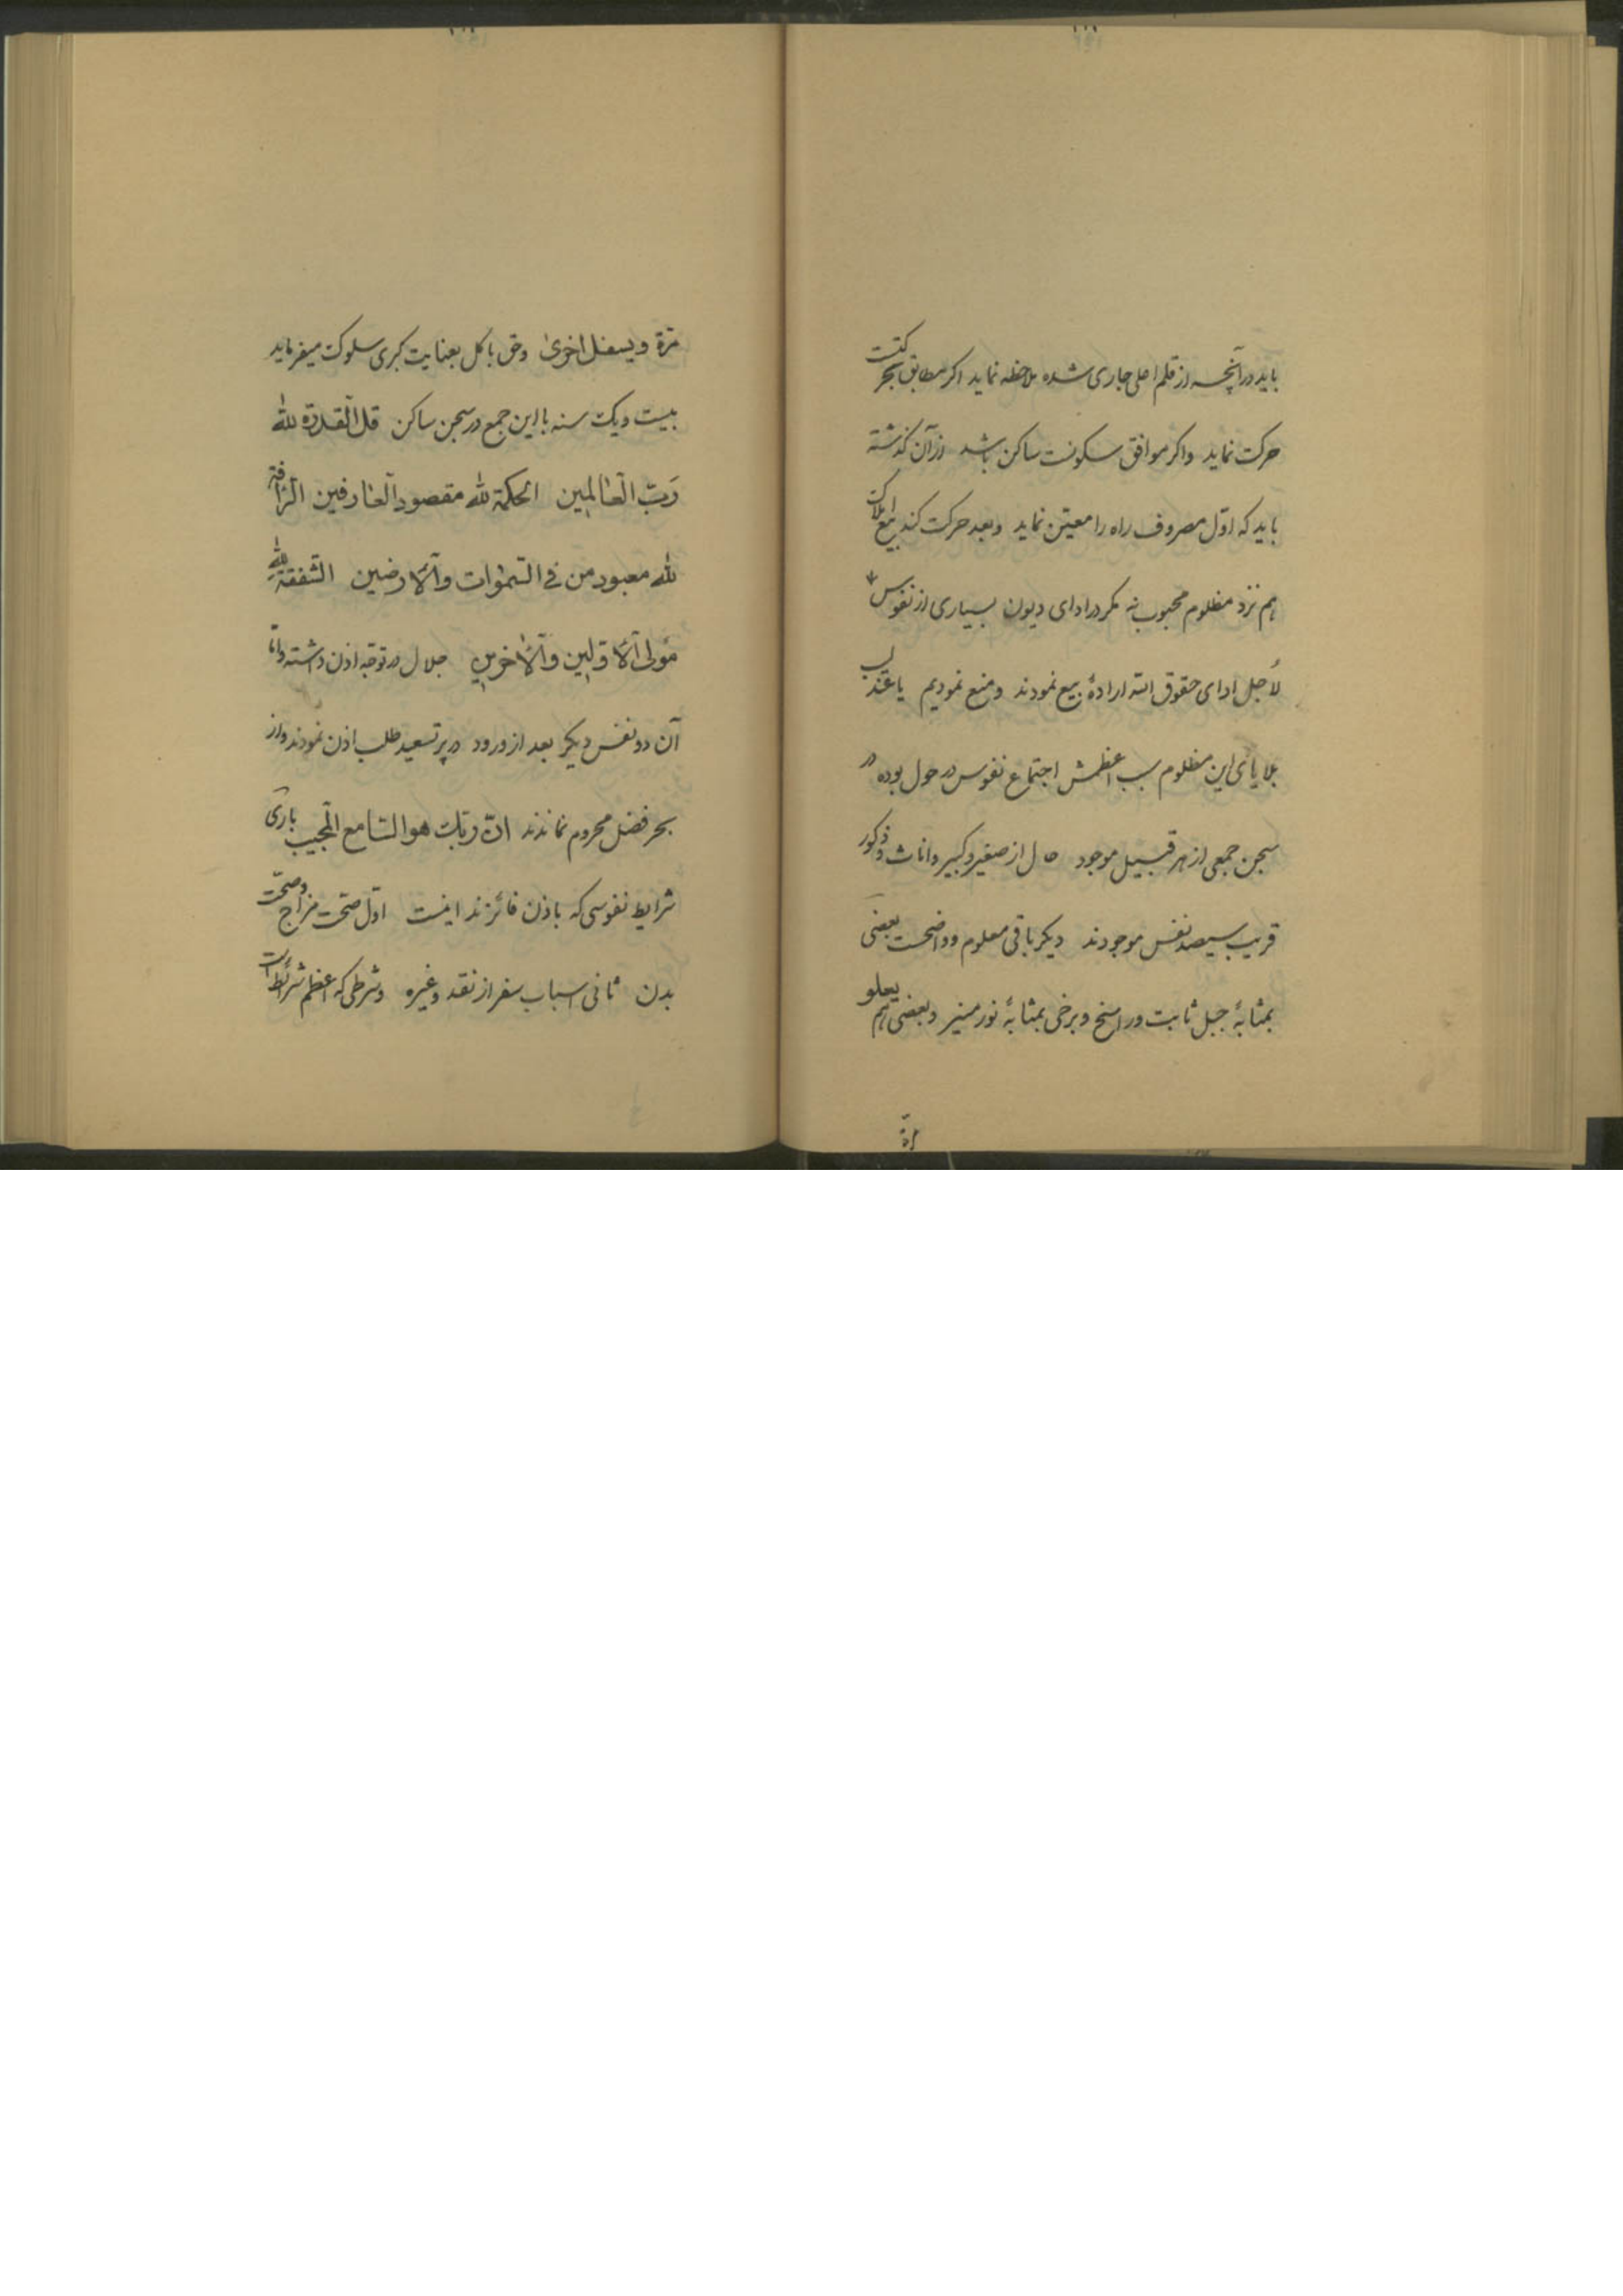 باید در آنچه از قلم اعلی جاری شده ملاحظه نماید اگر مطابق حرکتست
حرکت نماید و اگر موافق سکونست ساکن باشد از آن گذشته
باید که اوّل مصروف راه را معیّن نماید و بعد حرکت کند بیع املاک
هم نزد مظلوم محبوب نه مگر در ادای دیون بسیاری از نفوس
لأجل ادای حقوق الله ارادهٔ بیع نمودند و منع نمودیم یا عندلیب
بلایای این مظلوم سبب اعظمش اجتماع نفوس در حول بوده در
سجن جمعی از هر قبیل موجود حال از صغیر و کبیر و اناث و ذکور
قریب سیصد نفس موجودند دیگر باقی معلوم و واضحست بعضی
بمثابهٔ جبل ثابت و راسخ و برخی بمثابهٔ نور منیر و بعضی هم یعلو
مرّة
مرّة و یسفل اخری و حق با کل بعنایت کبری سلوک میفرماید
بیست و یک سنه با این جمع در سجن ساکن قل القدرة لله
ربّ العالمین الحکمة لله مقصود العارفین الرّأفة
لله معبود من فی السّموات و الأرضین الشّفقة لله
مولی الأوّلین و الأخرین جلال در توجّه اذن داشته و امّا
آن دو نفس دیگر بعد از ورود در پرتسعید طلب اذن نمودند و از
بحر فضل محروم نماندند انّ ربّک هو السّامع المجیب باری
شرایط نفوسی که باذن فائزند اینست اوّل صحّت مزاج و صحّت
بدن ثانی اسباب سفر از نقد و غیره و شرطی که اعظم شرائط است